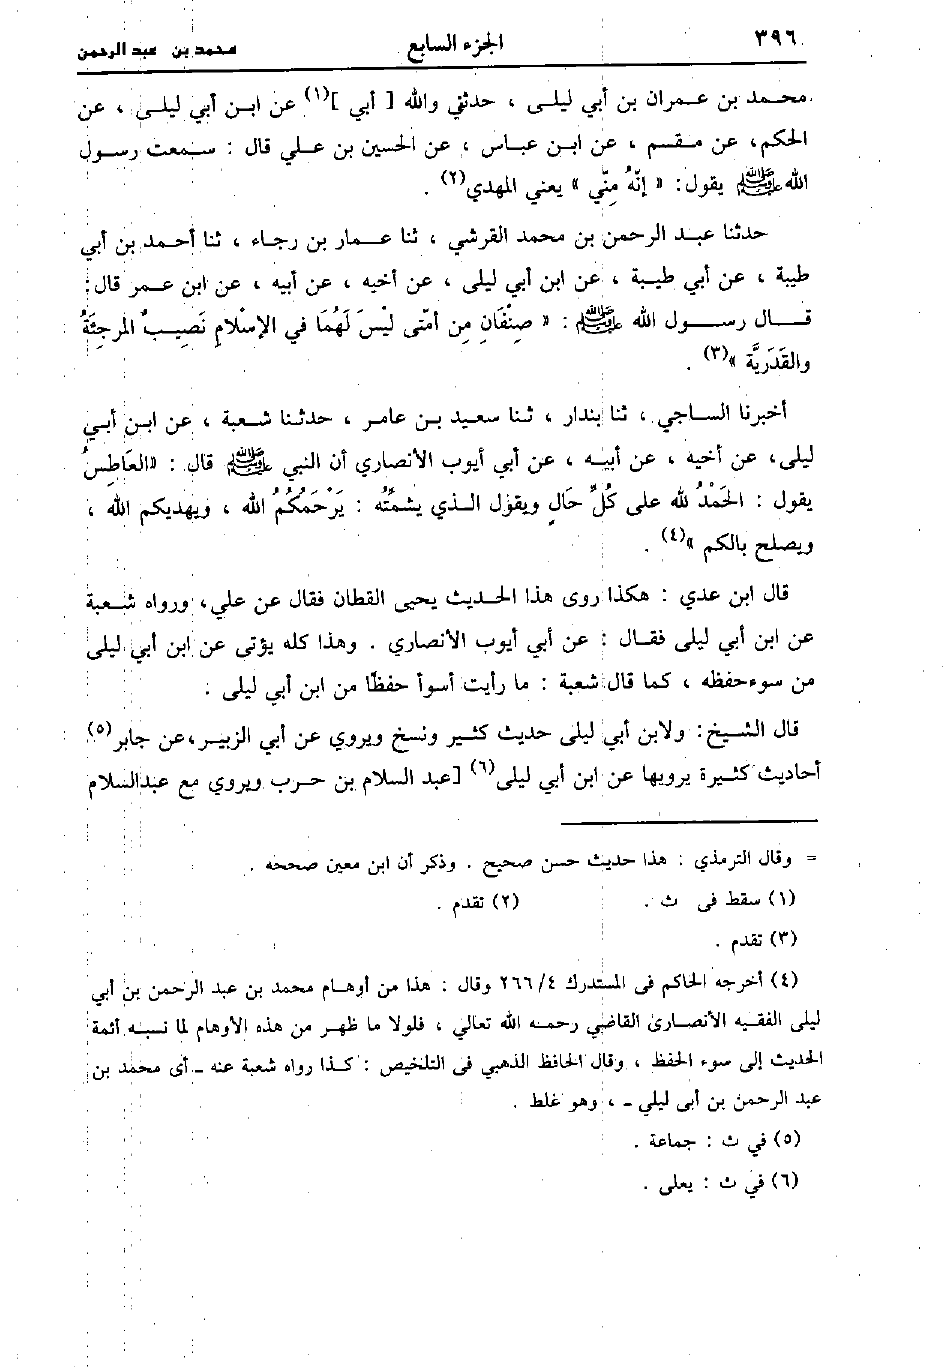 ٣٩٦ الجزء السابع محمد بن عبد الرحمن
محمد بن عمران بن أبي ليلى ، حدثني والله [ أبي ](١) عن ابن أبي ليلى ، عن
الحكم، عن مقسم ، عن ابن عباس ، عن الحسين بن علي قال : سمعت رسول
الله ﷺ يقول: « إنّهُ مِنّي » يعني المهدي(٢) .
حدثنا عبد الرحمن بن محمد القرشي ، ثنا عمار بن رجاء ، ثنا أحمد بن أبي
طيبة ، عن أبي طيبة ، عن ابن أبي ليلى ، عن أخيه ، عن أبيه ، عن ابن عمر قال:
قال رسول الله ﷺ : « صِنفَانِ مِن أمّتى لَيْسَ لَهُمَا في الإسْلامِ نَصِيبٌ المرجئَةُ
والقَدَريَّة »(٣) .
أخبرنا الساجي ، ثنا بندار ، ثنا سعيد بن عامر ، حدثنا شعبة ، عن ابن أبي
ليلى، عن أخيه ، عن أبيه ، عن أبي أيوب الأنصاري أن النبي ﷺ قال : «العَاطِسُ
يقول : الحَمْدُ لله على كُلِّ حَالٍ ويقول الذي يشمتُه : يَرْحَمُكُمُ الله ، ويهديكم الله ،
ويصلح بالكم »(٤) .
قال ابن عدي : هكذا روى هذا الحديث يحيى القطان فقال عن علي، ورواه شعبة
عن ابن أبي ليلى فقال : عن أبي أيوب الأنصاري . وهذا كله يؤتى عن ابن أبي ليلى
من سوء حفظه ، كما قال شعبة : ما رأيت أسوأ حفظًا من ابن أبي ليلى .
قال الشيخ: ولابن أبي ليلى حديث كثير ونسخ ويروي عن أبي الزبير، عن جابر(٥)
أحاديث كثيرة يرويها عن ابن أبي ليلى(٦) [عبد السلام بن حرب ويروي مع عبدالسلام
= وقال الترمذي : هذا حديث حسن صحيح . وذكر أن ابن معين صححه .
(١) سقط فى ث . (٢) تقدم .
(٣) تقدم .
(٤) أخرجه الحاكم فى المستدرك ٢٦٦/٤ وقال : هذا من أوهام محمد بن عبد الرحمن بن أبي
ليلى الفقيه الأنصارى القاضي رحمه الله تعالي ، فلولا ما ظهر من هذه الأوهام لما نسبه أئمة
الحديث إلى سوء الحفظ ، وقال الحافظ الذهبي فى التلخيص : كذا رواه شعبة عنه ـ أى محمد بن
عبد الرحمن بن أبى ليلي ـ ، وهو غلط .
(٥) في ث : جماعة .
(٦) في ث : يعلى .